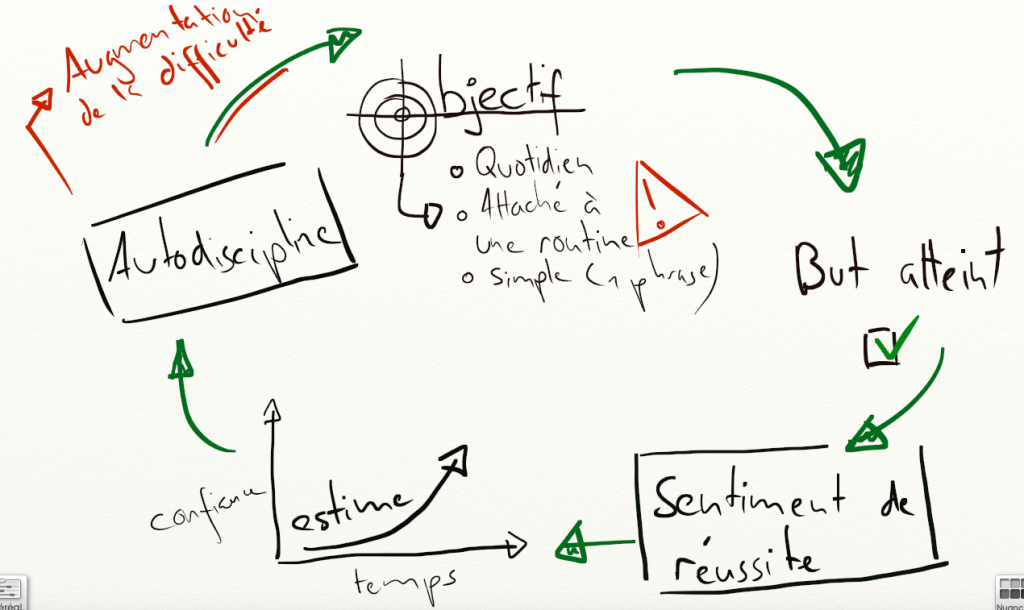 Augmentation
de la difficulté
Objectif
Quotidien
Attaché à
une routine
!
simple (1 phrase)
But atteint
Autodiscipline
Sentiment de
réussite
confiance
estime
temps
Nuanc